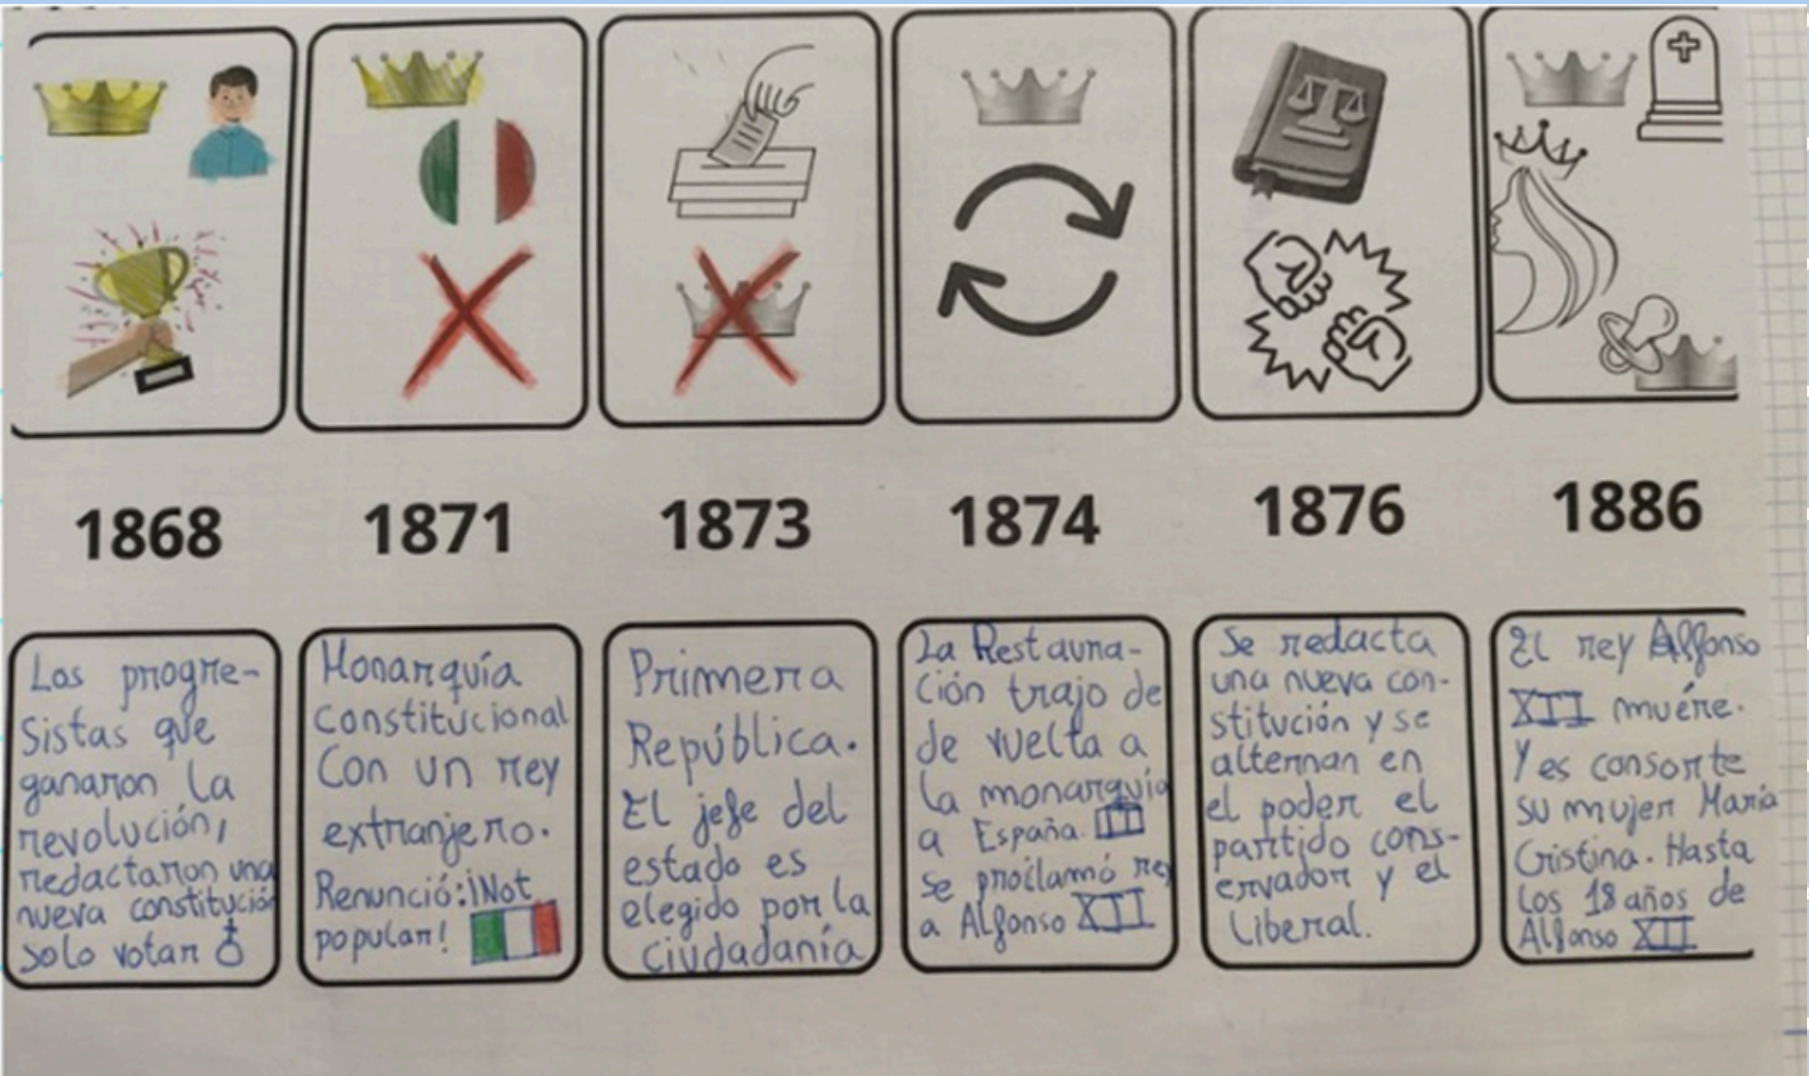 1868
1871
1873
1874
1876
1886
Los progre-
sistas que
ganaron la
revolución,
redactaron una
nueva constitución
solo votan
Monarquía
constitucional
Con un rey
extranjero.
Renunció: ¡Not
popular!
Primera
República.
El jefe del
estado es
elegido por la
ciudadanía
La Restaura-
ción trajo de
de vuelta a
la monarquía
a España.
se proclamó rey
a Alfonso XII
Se redacta
una nueva con-
stitución y se
alternan en
el poder el
partido cons-
ervador y el
Liberal.
El rey Alfonso
XII muére.
Y es consorte
su mujer María
Cristina. Hasta
los 18 años de
Alfonso XII